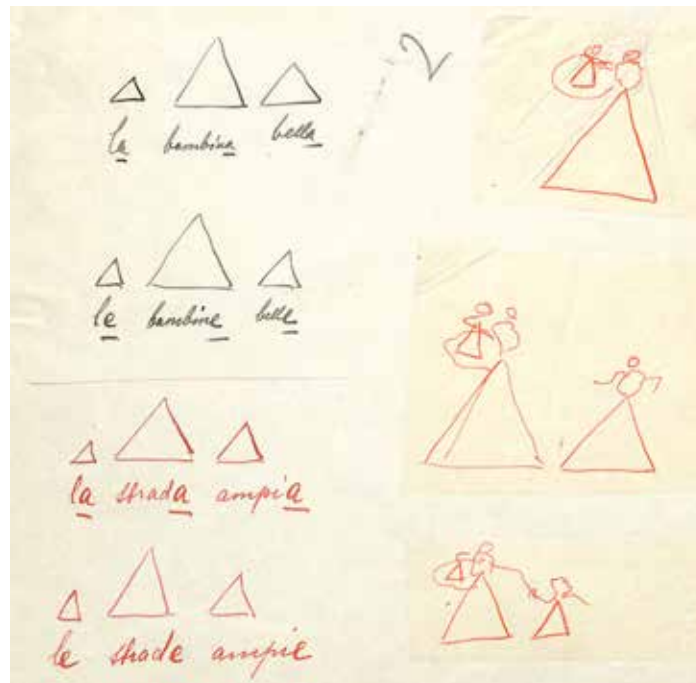 2
la bambina bella
le bambine belle
la strada ampia
le strade ampie